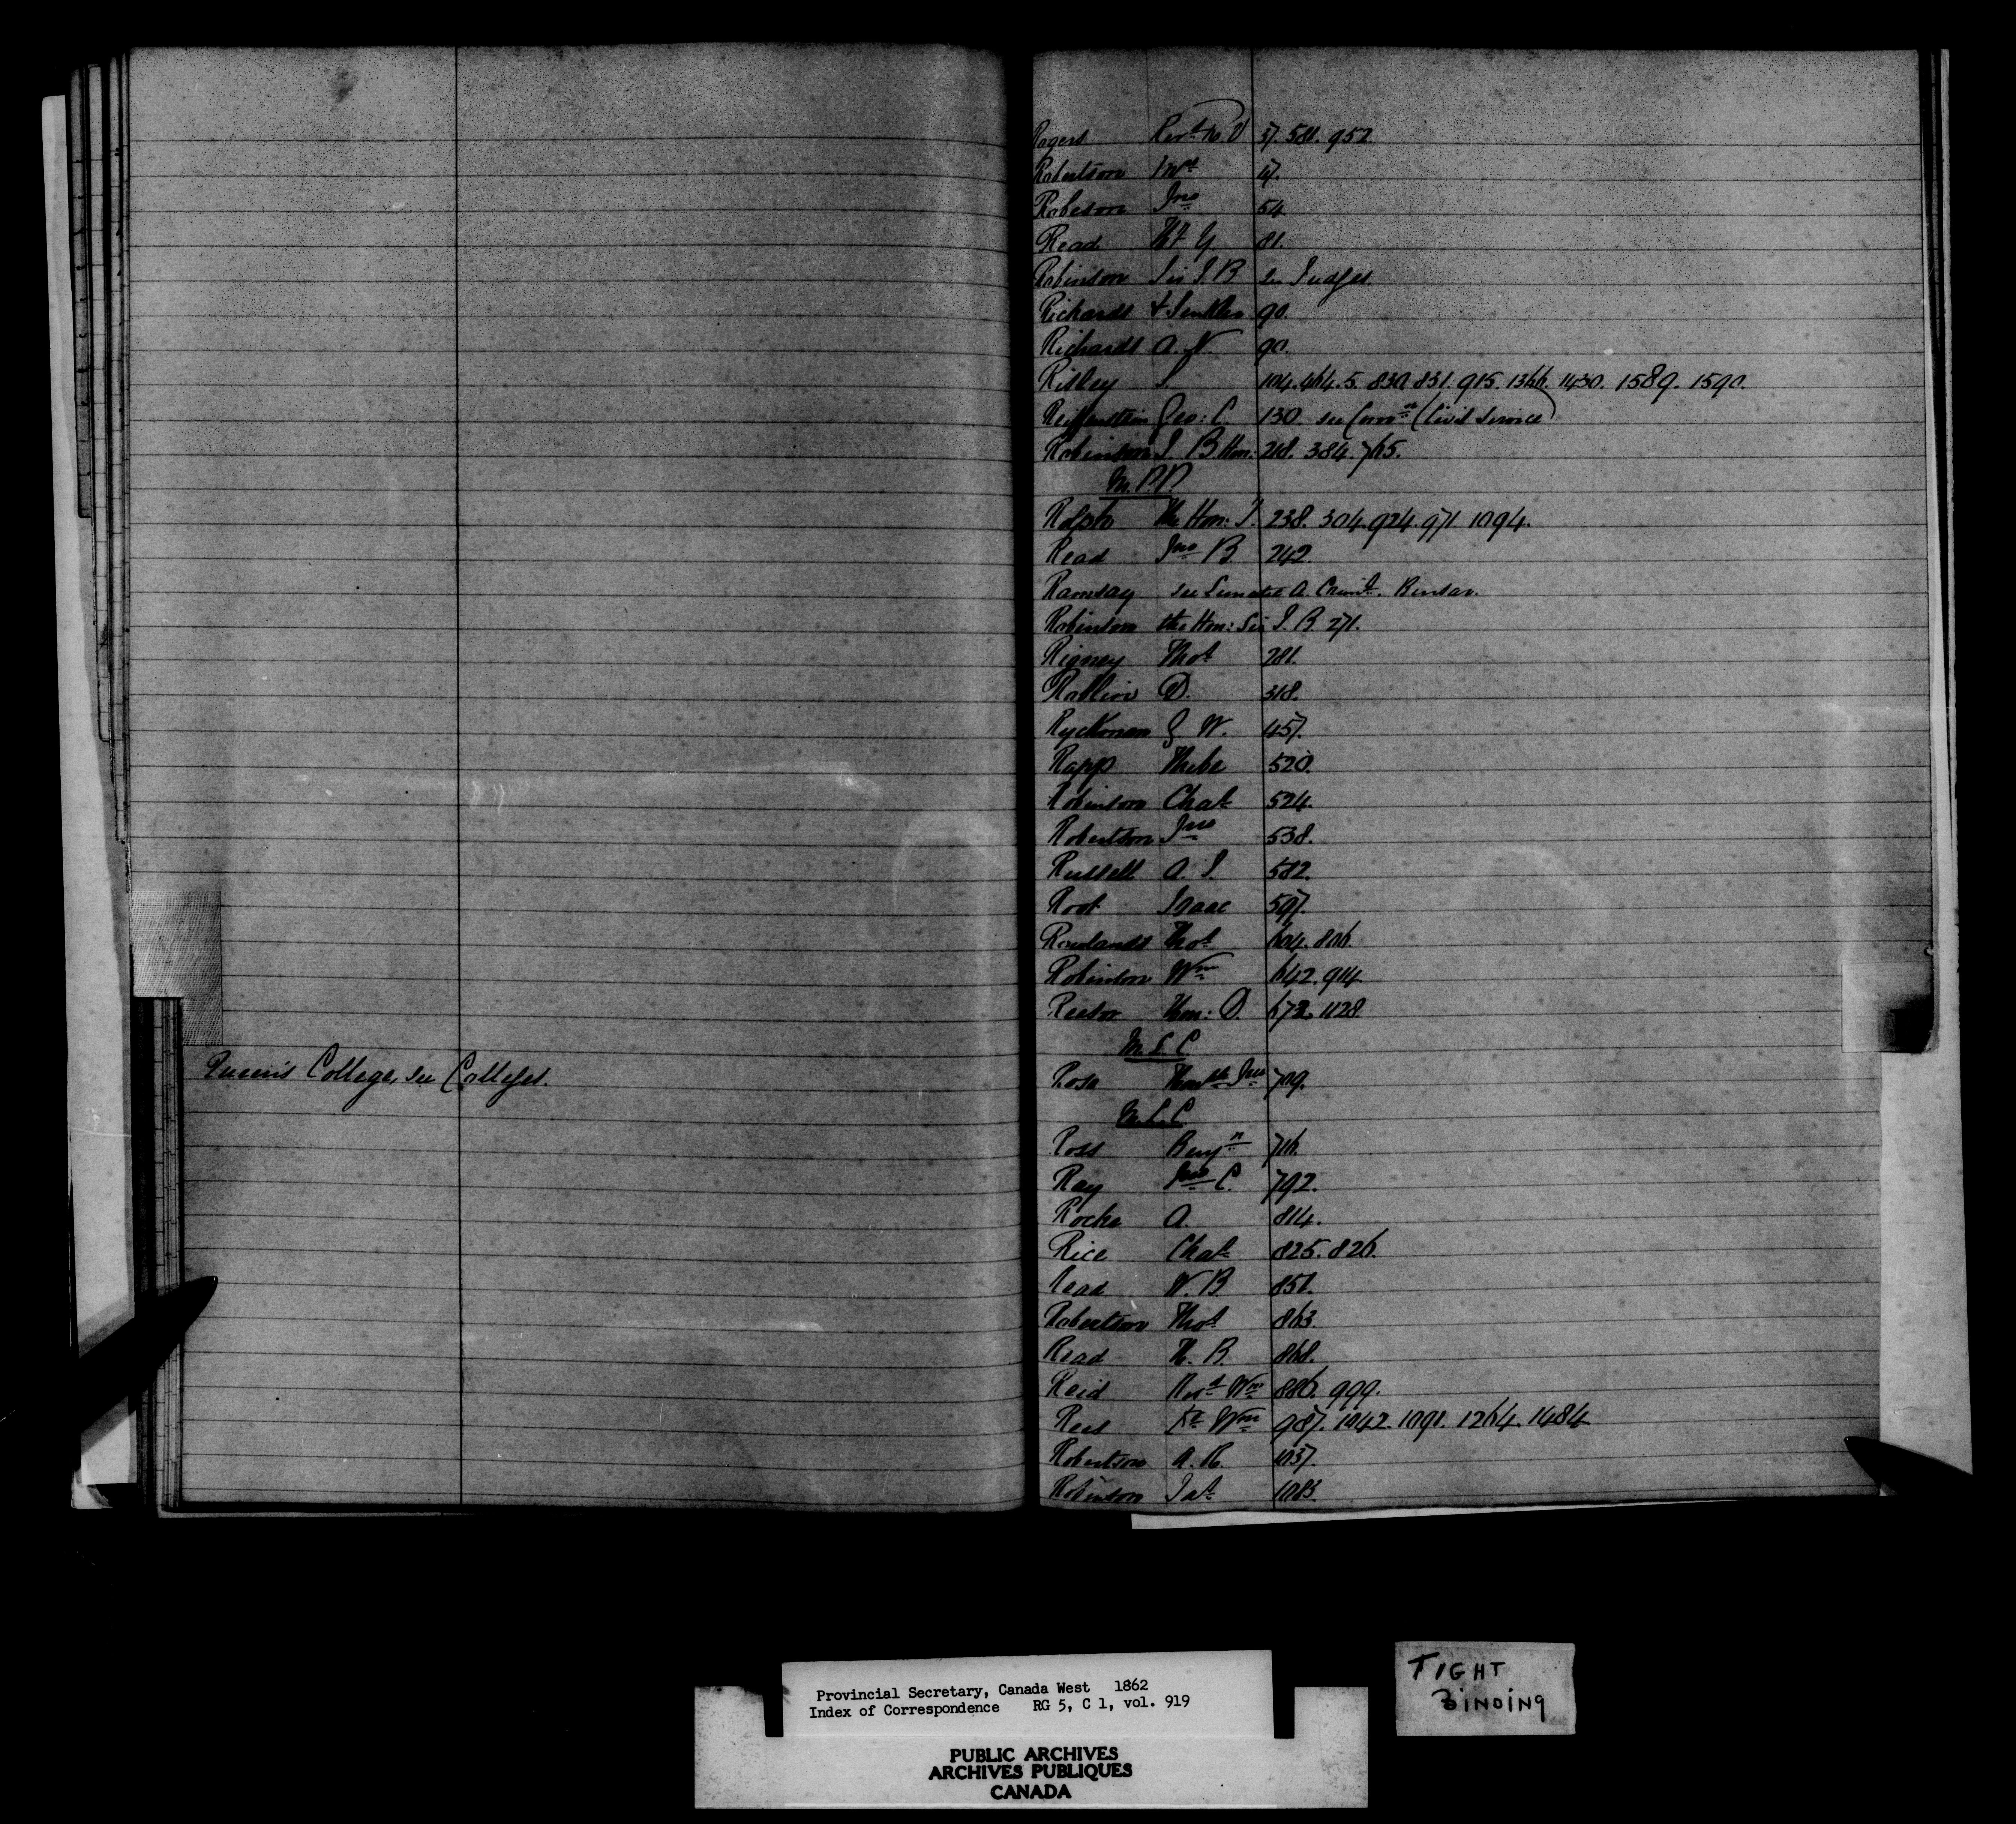 Queen's College, see Colleges.
Rogers Revd R. V 37. 581. 952.
Robertson 47.
Robeson Jno 54
Read H. Y 81.
Robinson Sir J. B see Judges.
Richards & Senkler 90.
Richards A. N. 90.
Ridley J. 104. 464. 5. 830. 831. 915. 1366. 1430. 1589. 1590.
Reiffenstein Geo: C. 130. see Commn (Civil Service)
Robinson J. B Hon: 218. 384. 765.
M.P.P.
Rolph The Hon: J. 238. 304. 924. 971. 1094.
Read Jno B. 242.
Ramsay see Lunatic A.
Robinson the Hon: Sir J. B 271.
Rigney Thos 281.
D. 318.
Ryckman G W. 457.
Rapp Phebe 520.
Robinson Chas 524.
Robertson Jno 538.
Russell A. J. 582.
Root Isaac 597.
Rowlands Thos 604. 806.
Robinson Wm 642. 914.
Reesor Hon: D. 672. 1128.
M.L.C
Ross Honble Jno 709.
M.L.C
Ross Benjn 716.
Ray Jno C. 792.
Roche A. 814.
Rice Chas 825. 826.
Read W. B. 851.
Robertson Thos 863.
Read H. B. 868.
Reid Revd Wm 886. 999.
Rees Dr Wm 987. 1042. 1091. 1264. 1484.
Robertson A. R. 1037.
Robinson Jas 1083.
Provincial Secretary, Canada West 1862
Index of Correspondence RG 5, C 1, vol. 919
PUBLIC ARCHIVES
ARCHIVES PUBLIQUES
CANADA
TIGHT
BINDING